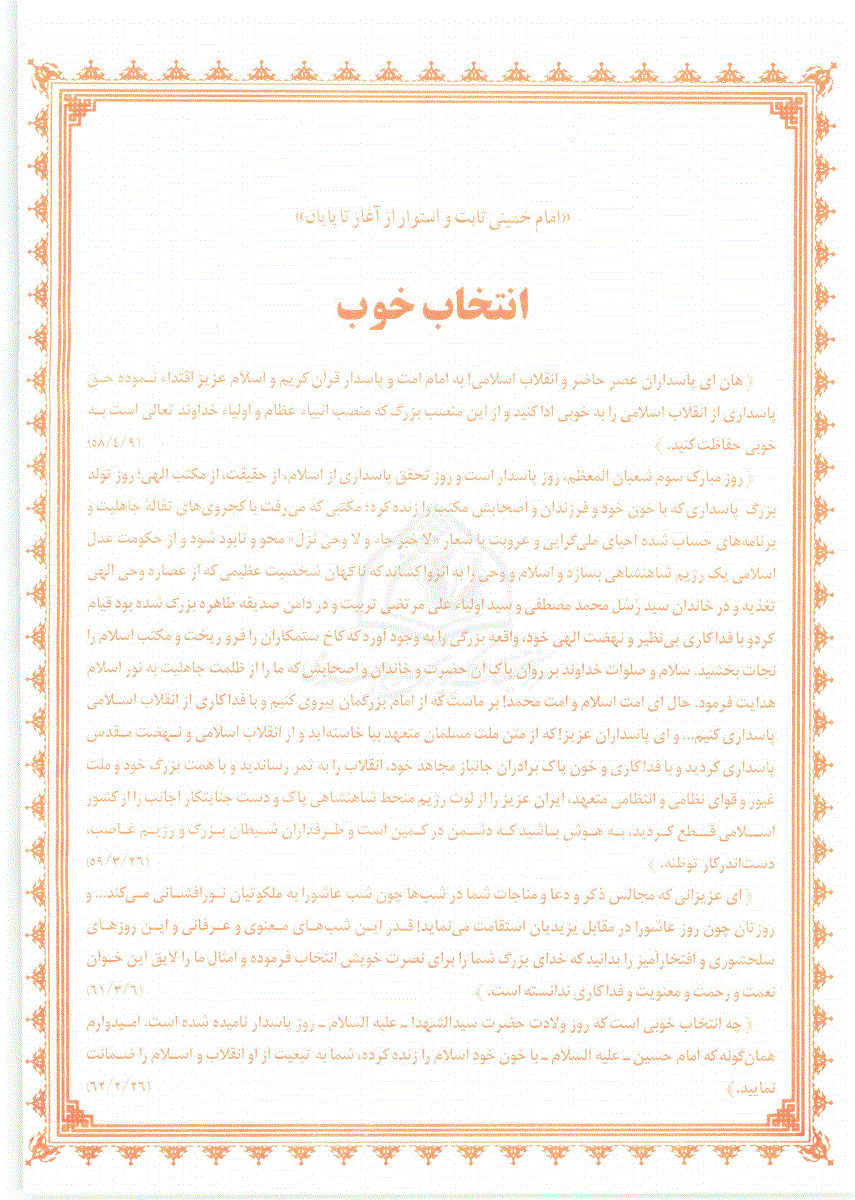 «امام خمینی ثابت و استوار از آغاز تا پایان»
انتخاب خوب
﴿ هان ای پاسداران عصر حاضر و انقلاب اسلامی! به امام امت و پاسدار قرآن کریم و اسلام عزیز اقتداء نـموده حـق
پاسداری از انقلاب اسلامی را به خوبی ادا کنید و از این منصب بزرگ که منصب انبیاء عظام و اولیاء خداوند تعالی است بـه
خوبی حفاظت کنید. ﴾ (۵۸/٤/۹)
﴿ روز مبارک سوم شعبان المعظم، روز پاسدار است و روز تحقق پاسداری از اسلام، از حقیقت، از مکتب الهی؛ روز تولد
بزرگ پاسداری که با خون خود و فرزندان و اصحابش مکتب را زنده کرد؛ مکتبی که می‌رفت با کجروی‌های تفالهٔ جاهلیت و
برنامه‌های حساب شده احیای ملی‌گرایی و عروبت با شعار «لا خبر جاء و لا وحی نزل» محو و نابود شود و از حکومت عدل
اسلامی یک رژیم شاهنشاهی بسازد و اسلام و وحی را به انزوا کشاند که ناگهان شخصیت عظیمی که از عصاره وحی الهی
تغذیه و در خاندان سید رُسُل محمد مصطفی و سید اولیاء علی مرتضی تربیت و در دامن صدیقه طاهره بزرگ شده بود قیام
کرد و با فداکاری بی‌نظیر و نهضت الهی خود، واقعه بزرگی را به وجود آورد که کاخ ستمکاران را فرو ریخت و مکتب اسلام را
نجات بخشید. سلام و صلوات خداوند بر روان پاک آن حضرت و خاندان و اصحابش که ما را از ظلمت جاهلیت به نور اسلام
هدایت فرمود. حال ای امت اسلام و امت محمد! بر ماست که از امام بزرگمان پیروی کنیم و با فداکاری از انقلاب اسـلامی
پاسداری کنیم... و ای پاسداران عزیز! که از متن ملت مسلمان متعهد بپا خاسته‌اید و از انقلاب اسلامی و نـهضت مـقدس
پاسداری کردید و با فداکاری و خون پاک برادران جانباز مجاهد خود، انقلاب را به ثمر رساندید و با همت بزرگ خود و ملت
غیور و قوای نظامی و انتظامی متعهد، ایران عزیز را از لوث رژیم منحط شاهنشاهی پاک و دست جنایتکار اجانب را از کشور
اسـلامی قـطع کـردید، بـه هـوش بـاشید کـه دشـمن در کـمین است و طـرفداران شـیطان بـزرگ و رژیـم غـاصب،
دست‌اندرکار توطئه. ﴾ (۵۹/۳/۲۶)
﴿ ای عزیزانی که مجالس ذکر و دعا و مناجات شما در شب‌ها چون شب عاشورا به ملکوتیان نـورافشـانی مـی‌کند... و
روزتان چون روز عاشورا در مقابل یزیدیان استقامت می‌نماید! قـدر ایـن شب‌هـای مـعنوی و عـرفانی و ایـن روزهـای
سلحشوری و افتخارآمیز را بدانید که خدای بزرگ شما را برای نصرت خویش انتخاب فرموده و امثال ما را لایق این خـوان
نعمت و رحمت و معنویت و فداکاری ندانسته است. ﴾ (۶۱/۳/۶)
﴿ چه انتخاب خوبی است که روز ولادت حضرت سیدالشهدا ـ علیه السلام ـ روز پاسدار نامیده شده است. امـیدوارم
همان‌گونه که امام حسین ـ علیه السلام ـ با خون خود اسلام را زنده کرده، شما به تبعیت از او انقلاب و اسـلام را ضـمانت
نمایید. ﴾ (۶۲/۲/۲۶)